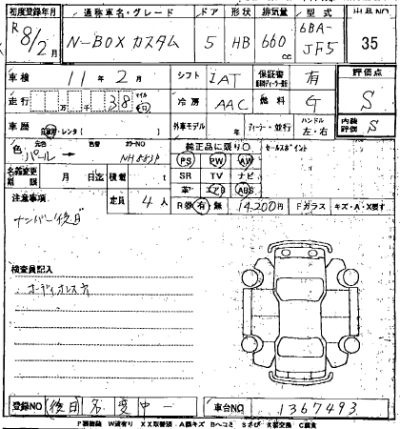 初度登録年月 通称車名・グレード ドア 形状 排気量 型式 出品NO
R8/2月 N-BOX カスタム 5 HB 660cc 6BA-JF5 35
車検 11年 2月 シフト IAT 保証書 有 評価点
走行 万 千 38 マイル km 冷房 AAC 燃料 G S
車歴 自家用・レンタ( ) 外車モデル 年 ディーラー・並行 ハンドル 左・右 内装評価 S
色 元色 色替 カラーNO 純正品に限り○ セールスポイント
パール → NH883P PS PW AW
名義変更期限 月 日迄 積載 t SR TV ナビ
革 エアB ABS
注意事項 定員 4人 R券 有 無 14200円 Fガラス キズ・A・X要す
ナンバー後日
検査員記入
オーディオレス方
登録NO 後日名変中 車台NO 1367493